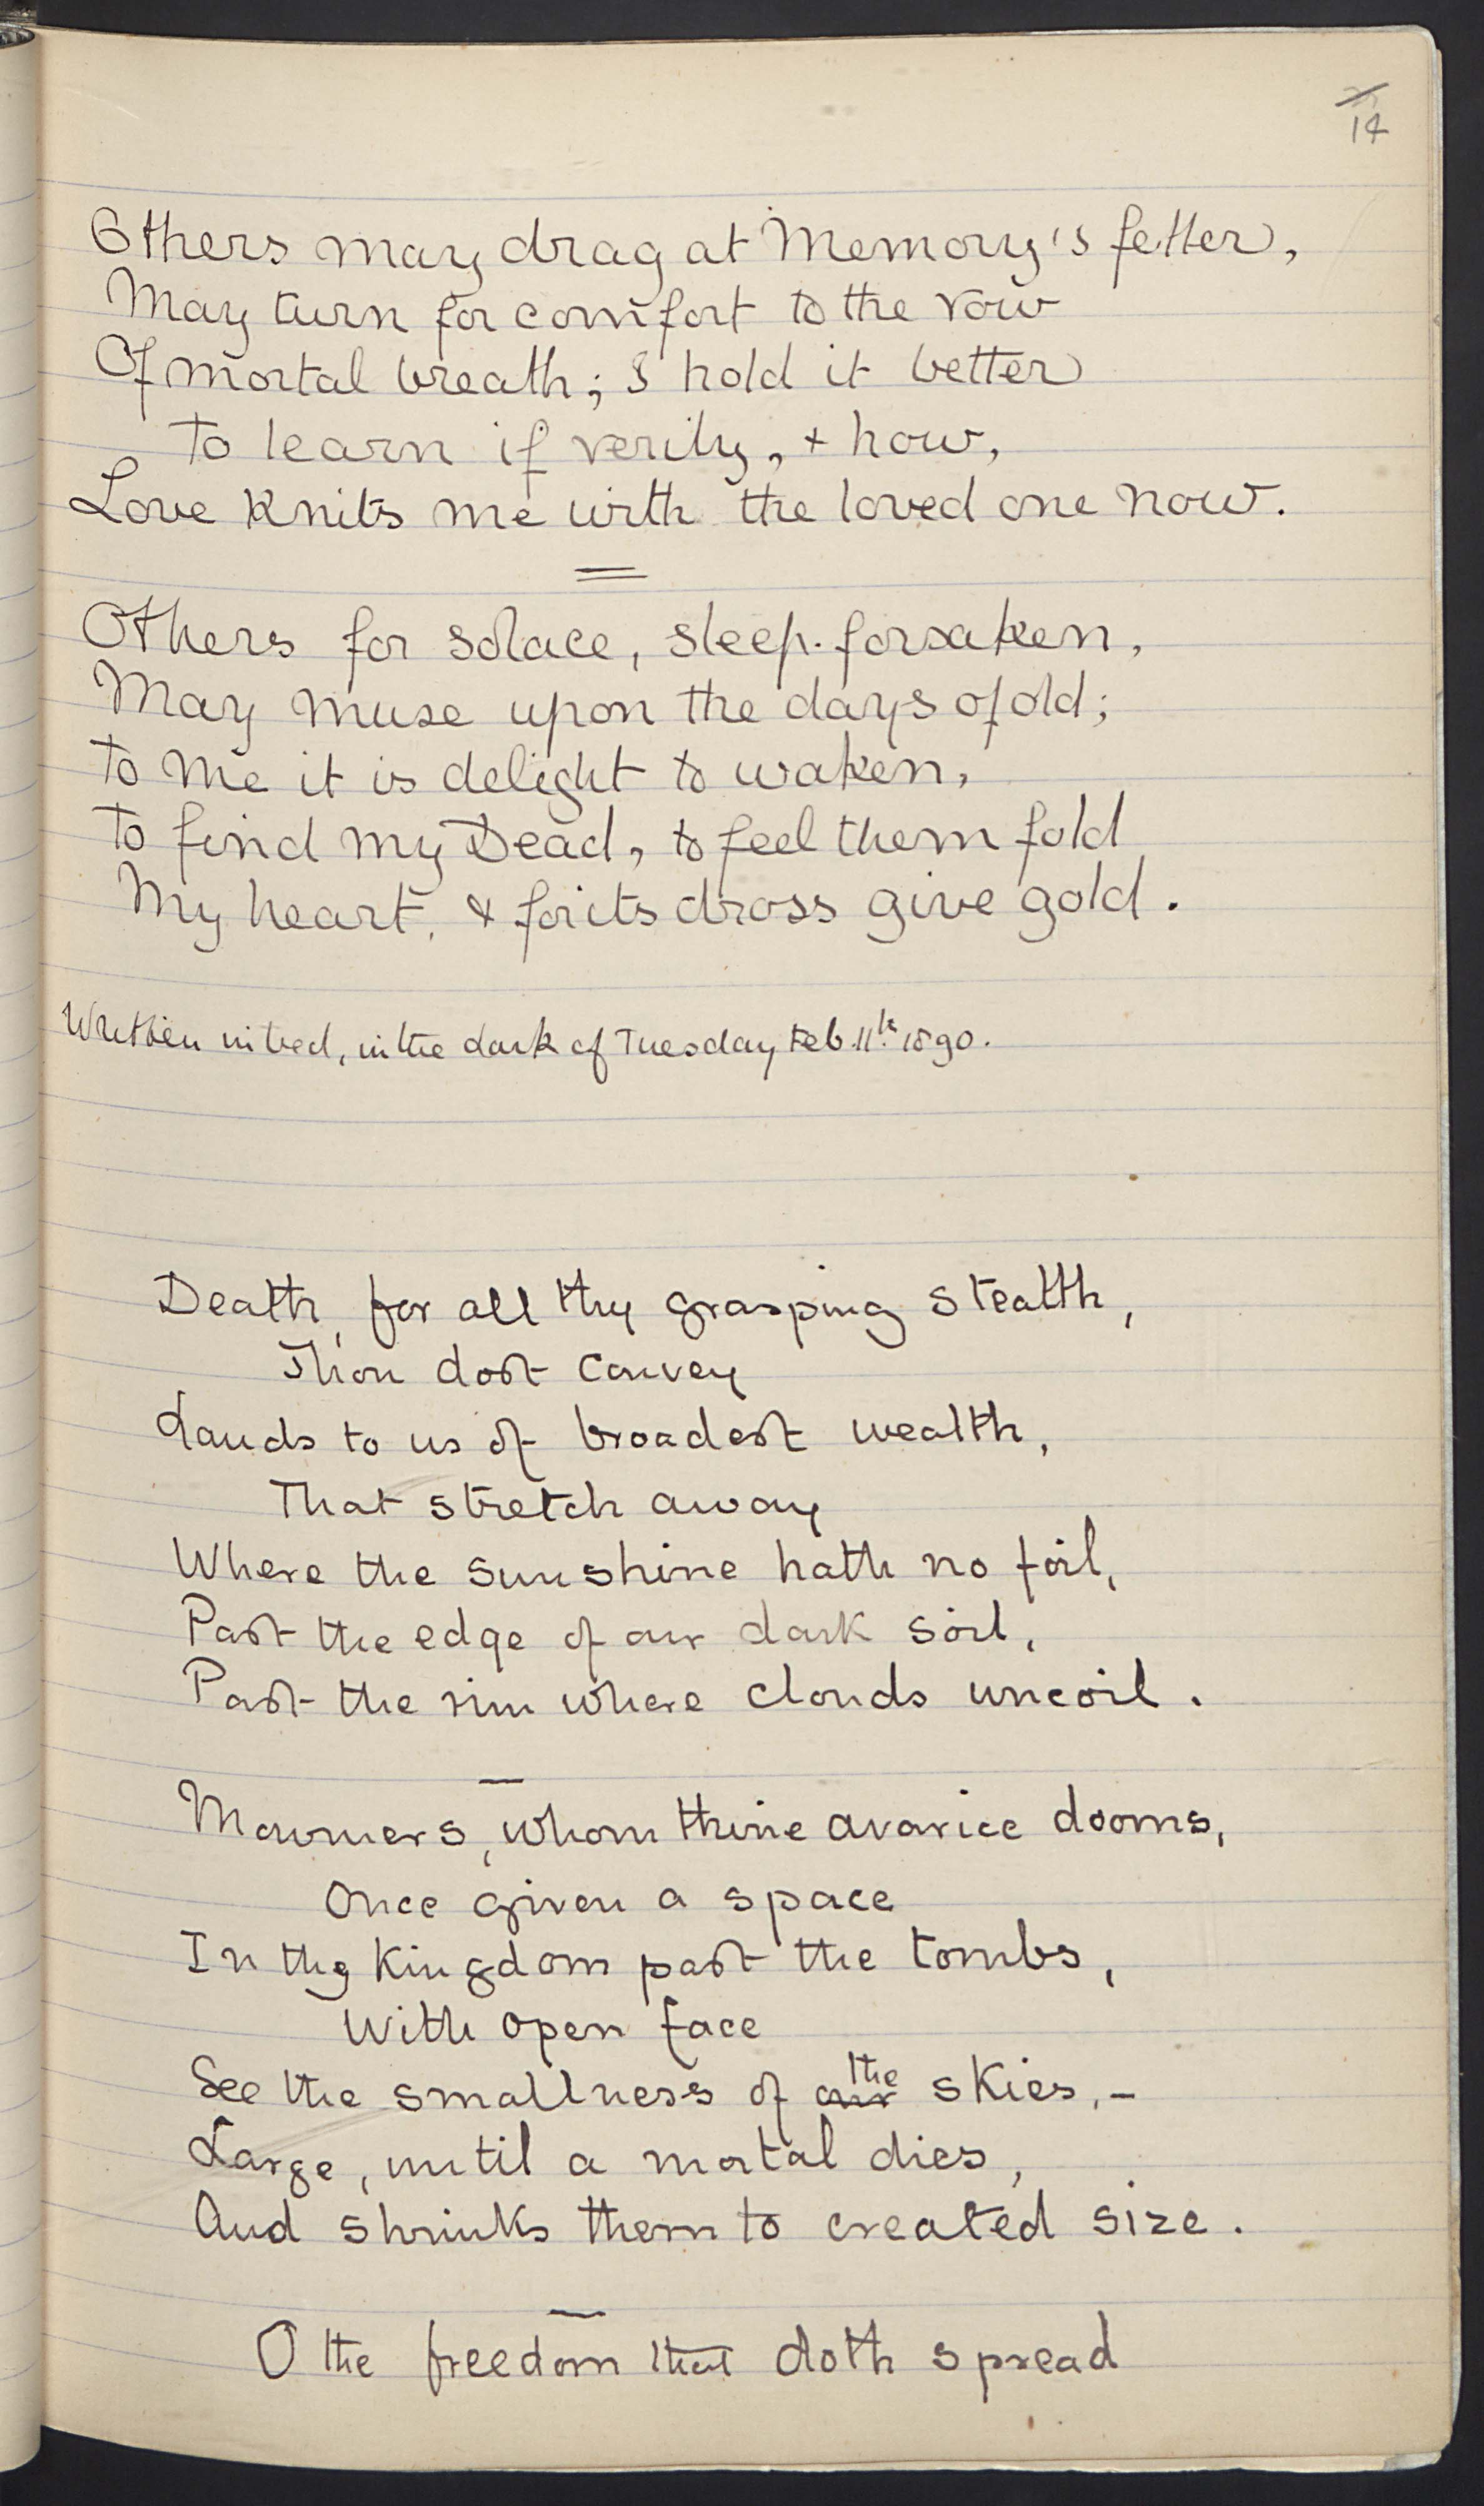 14
Others may drag at Memory's fetter,
May turn for comfort to the vow
Of mortal breath; I hold it better
To learn if verily, + how,
Love knits me with the loved one now.
Others for solace, sleep-forsaken,
May muse upon the days of old;
To me it is delight to waken,
To find my Dead, to feel them fold
My heart, & for its dross give gold.
Written in bed, in the dark of Tuesday Feb. 11th 1890.
Death, for all thy grasping stealth,
Thou dost convey
Lands to us of broadest wealth,
That stretch away
Where the sunshine hath no foil,
Past the edge of our dark soil,
Past the rim where clouds uncoil.
Mourners, whom thine avarice dooms,
Once given a space
In thy Kingdom past the tombs,
With open face
See the smallness of our the skies, –
Large, until a mortal dies,
And shrinks them to created size.
O the freedom that doth spread